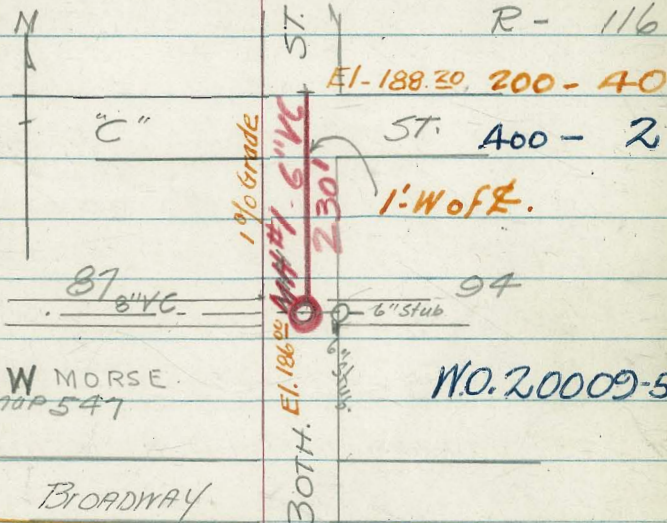 N
ST.
R - 116
El-188.30 200 - 40
"C" ST. 400 - 2
1% Grade
MH#1 - 6"VC
230'
1' W of ℄.
87 94
8"VC 6" Stub
El. 186.00
6" Stub
W MORSE
MAP 547
W.O. 20009-5
30TH.
BROADWAY